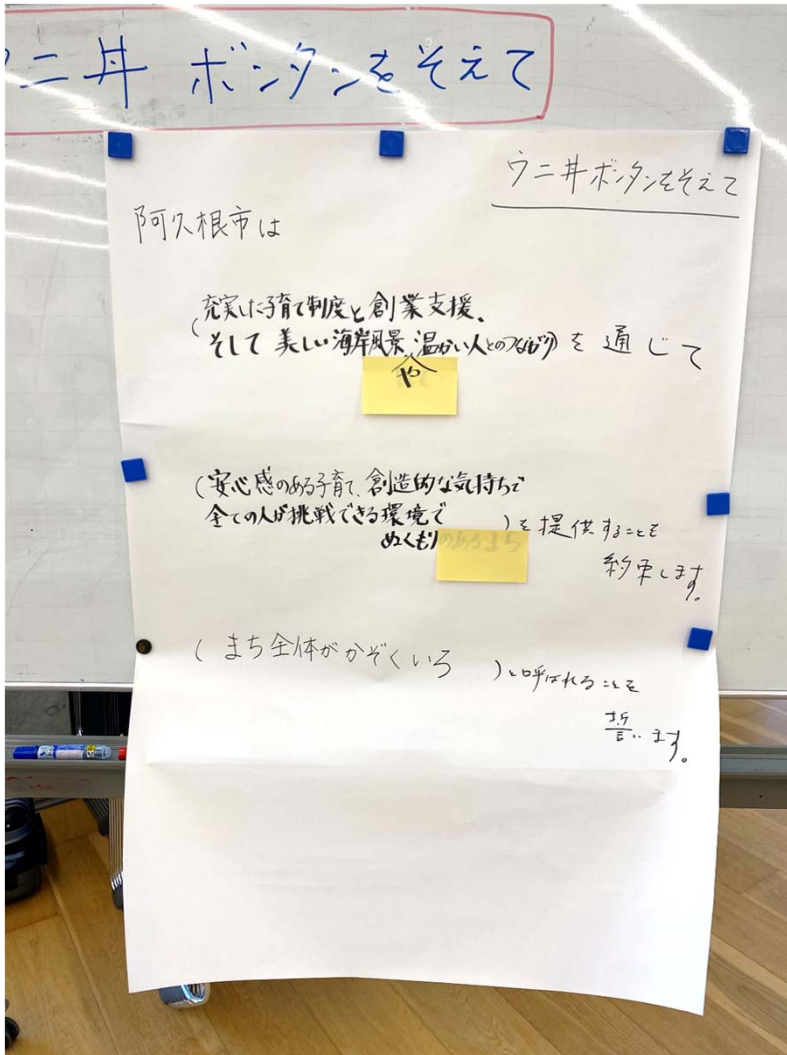 ニ丼 ボンタンをそえて
ウニ丼ボンタンをそえて
阿久根市は
(充実した子育て制度と創業支援、
そして 美しい海岸風景 温かい人とのつながり)を通じて
や
(安心感のある子育て、創造的な気持ちで
全ての人が挑戦できる環境で
ぬくもりのあるまち
)を提供することを
約束します。
(まち全体がかぞくいろ
)と呼ばれることを
誓います。